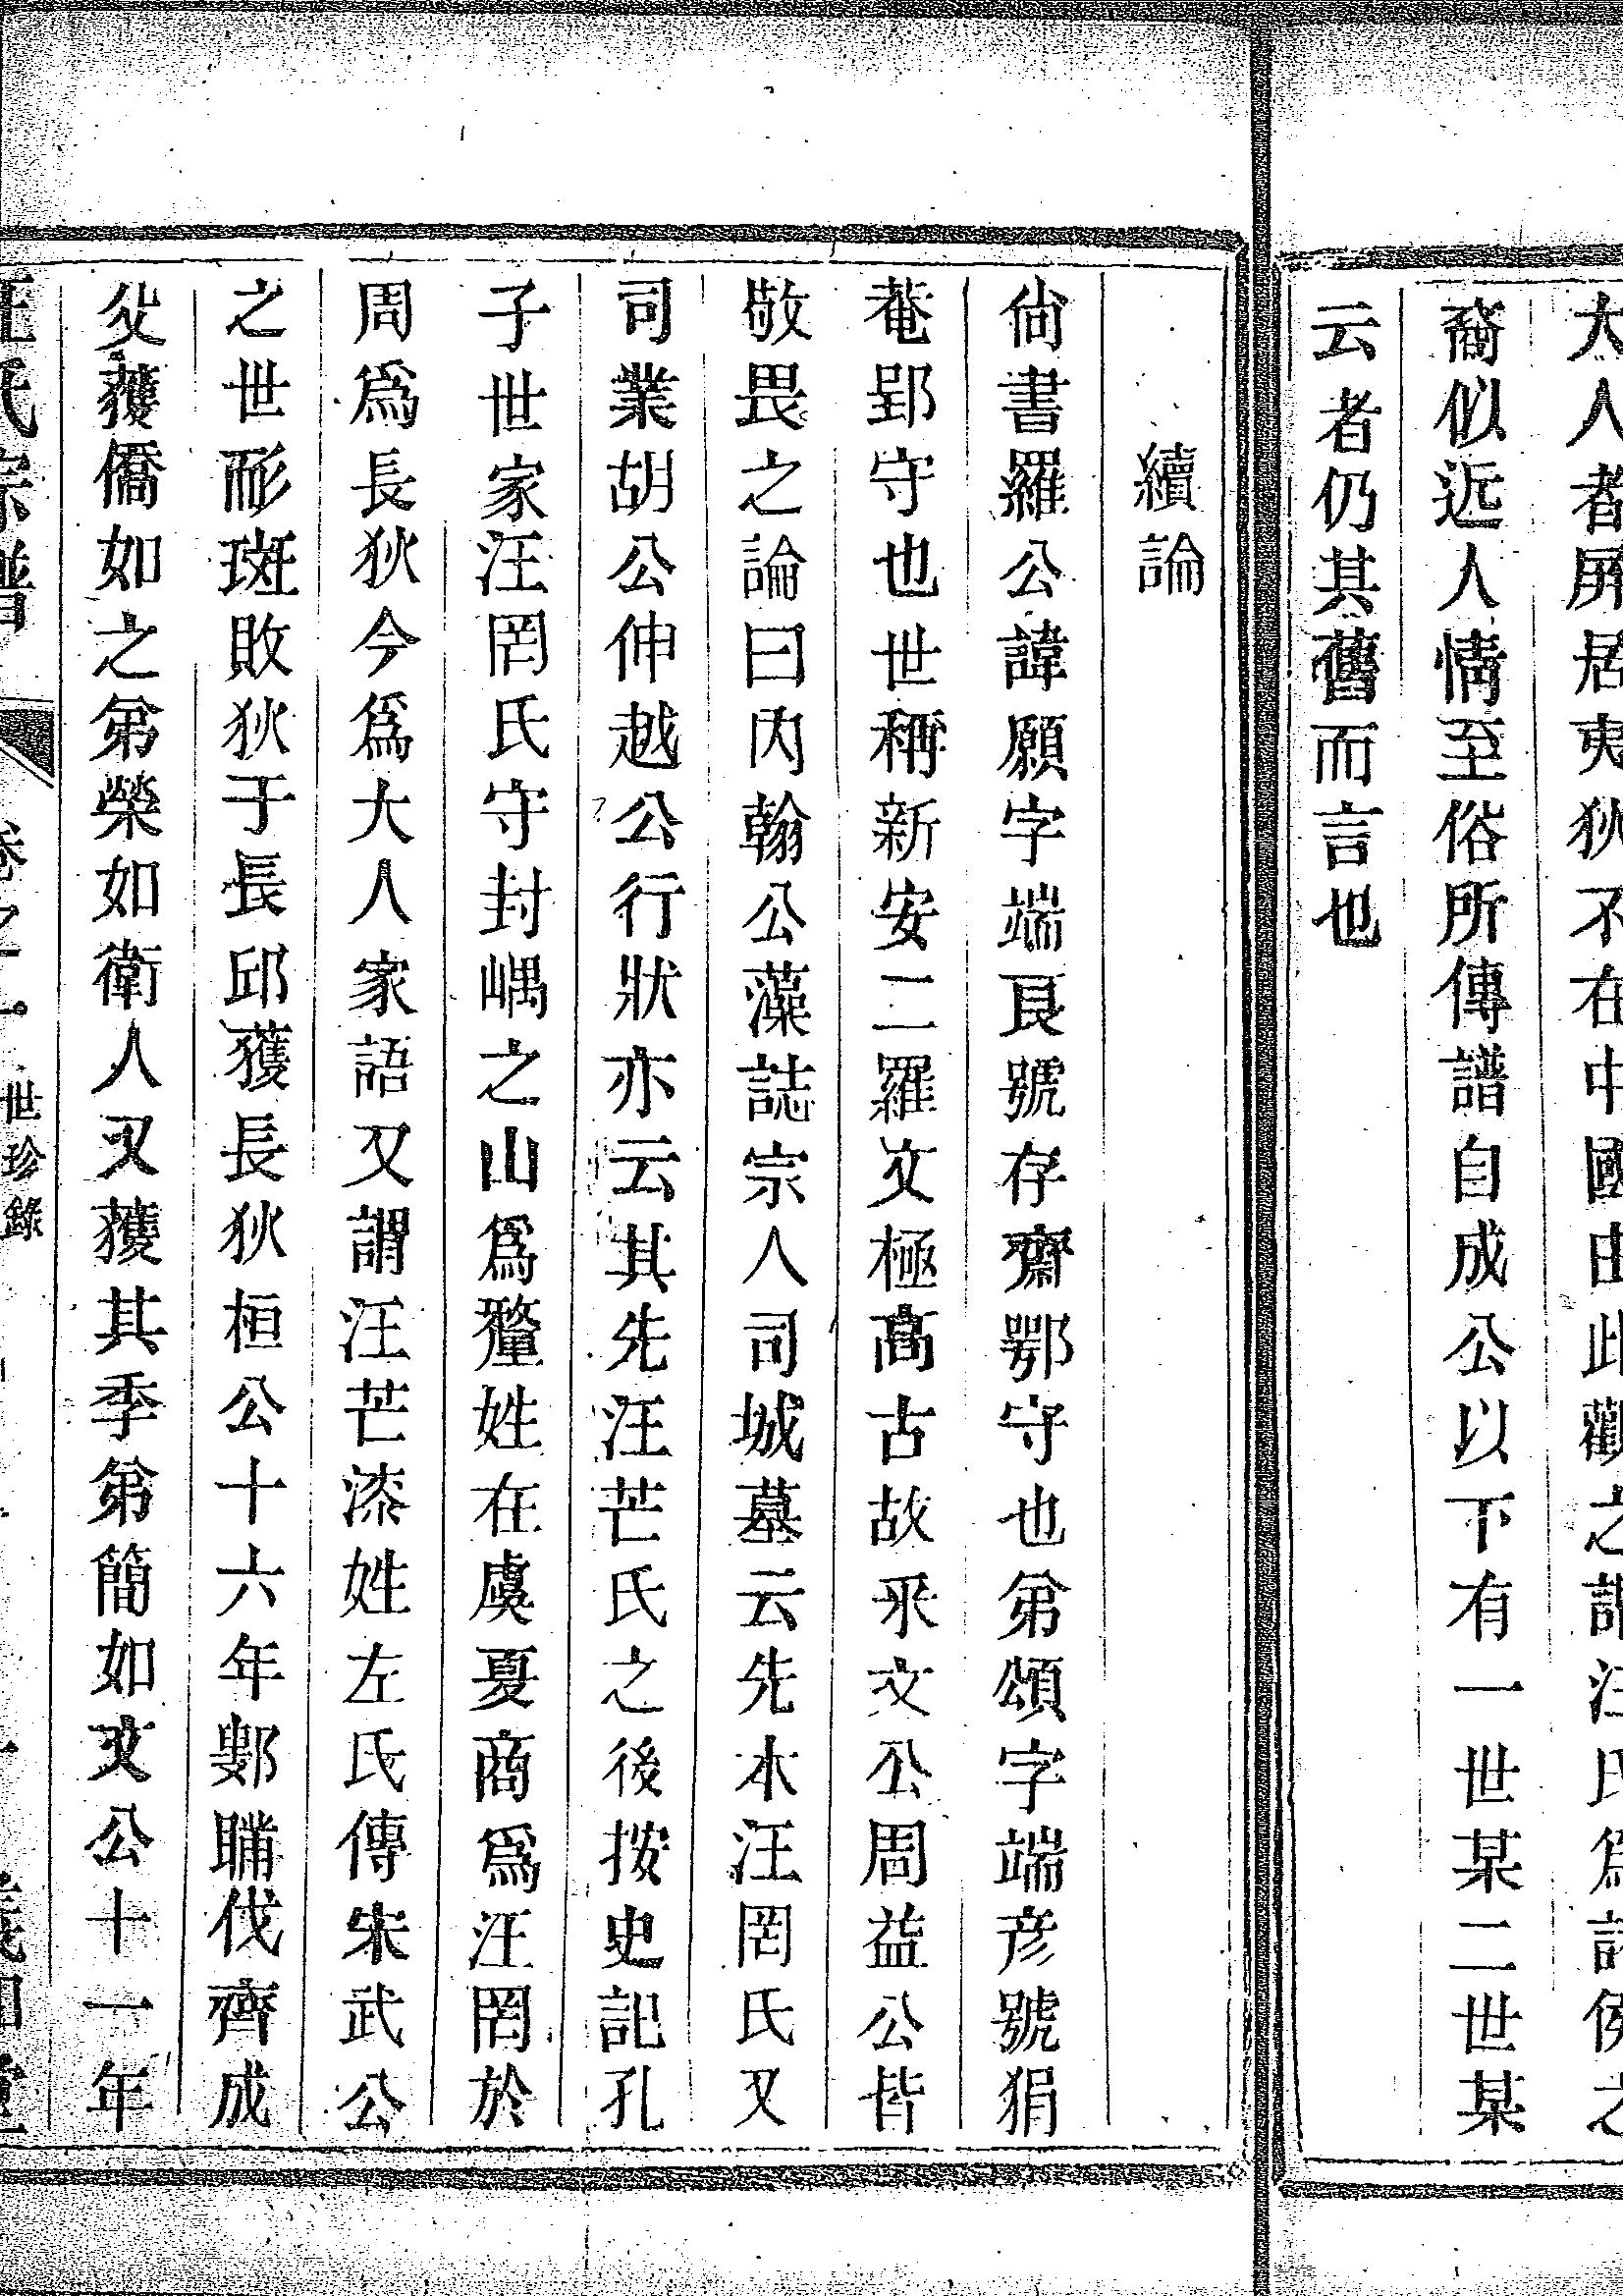 大人者屏居夷狄不在中國由此觀之謂汪氏為諸侯之
裔似近人情至俗所傳譜自成公以下有一世某二世某
云者仍其舊而言也
續論
尙書羅公諱願字端良號存齋鄂守也弟頌字端彦號狷
菴郢守也世稱新安二羅文極高古故朱文公周益公皆
敬畏之論曰内翰公藻誌宗人司城墓云先本汪罔氏又
司業胡公伸越公行狀亦云其先汪芒氏之後按史記孔
子世家汪罔氏守封嵎之山爲釐姓在虞夏商爲汪罔於
周爲長狄今爲大人家語又謂汪芒漆姓左氏傳宋武公
之世耏班敗狄于長邱獲長狄桓公十六年鄋瞞伐齊成
父獲僑如之弟榮如衛人又獲其季弟簡如文公十一年
汪氏宗譜 卷之一 世珍錄